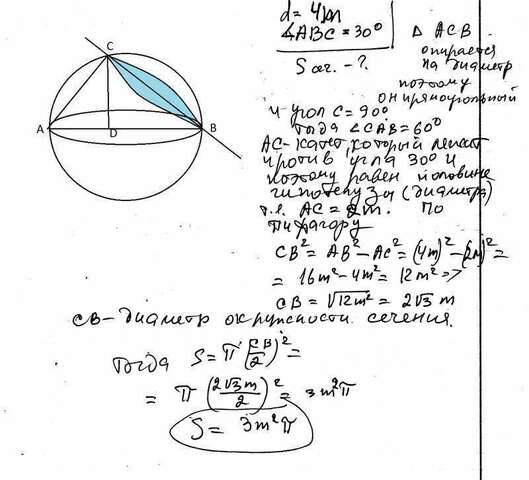 d = 4m
∠ABC = 30°
S сеч. - ?
Δ ACB
опирается
на диаметр
поэтому
он прямоугольный
и угол C = 90°
Тогда ∠CAB = 60°
AC - катет, который лежит
против угла 30° и
поэтому равен половине
гипотенузы (диаметра)
т.е. AC = 2m. По
Пифагору
CB² = AB² - AC² = (4m)² - (2m)² =
= 16m² - 4m² = 12m² =>
CB = √12m² = 2√3 m
CB - диаметр окружности сечения.
Тогда S = π (CB/2)² =
= π (2√3m/2)² = 3m²π
S = 3m²π
C
A
D
B